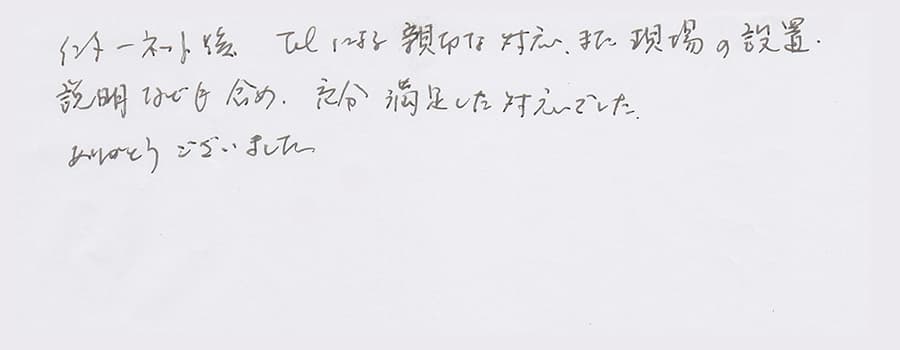 インターネット後、Telによる親切な対応、また現場の設置・
説明なども含め、充分満足した対応でした。
ありがとうございました。